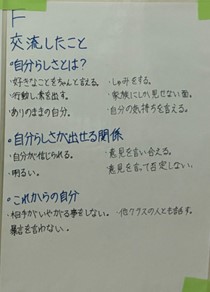 F
交流したこと
●自分らしさとは?
・好きなことをちゃんと言える。
・行動し素を出す。
・ありのままの自分。
・しゅみをする。
・家族にしか見せない面。
・自分の気持ちを言える。
●自分らしさが出せる関係
・自分が信じられる。
・明るい。
・意見を言い合える。
・意見を言って否定しない。
●これからの自分
・相手がいやがる事をしない。
・他クラスの人とも話す。
暴言を言わない。